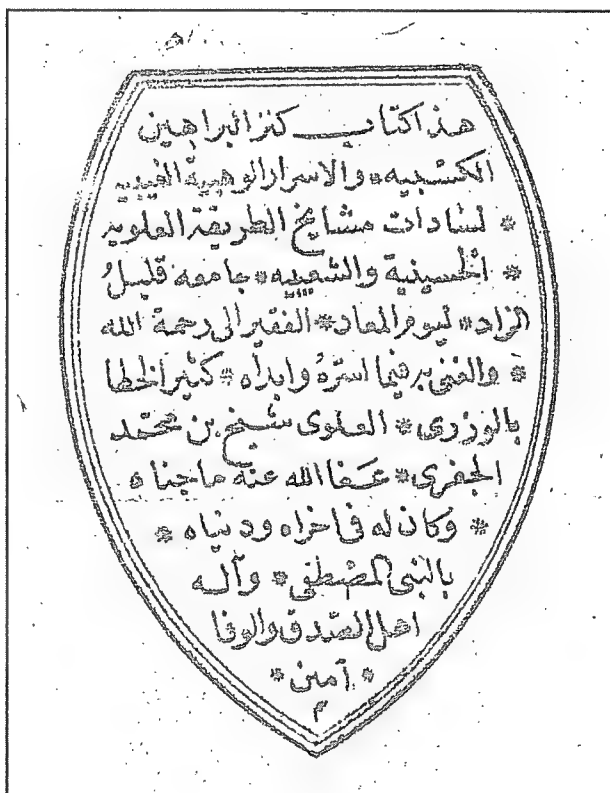 هذا كتاب كنز البراهين
الكسبيه * والاسرار الوهبية الغيبيه
* لسادات مشايخ الطريقة العلويه
* الحسينية والشعيبيه * جامعه قليل
الزاد * ليوم المعاد * الفقير الى رحمة الله
* والغنى به فيما اسره وابداه * كثير الخطا
بالوزرى * العلوى شيخ بن محمد
الجفرى * عفا الله عنه ماجناه
* وكان له فى اخراه ودنياه *
بالنبى المصطفى * وآله
اهل الصدق والوفا
* آمين *
م